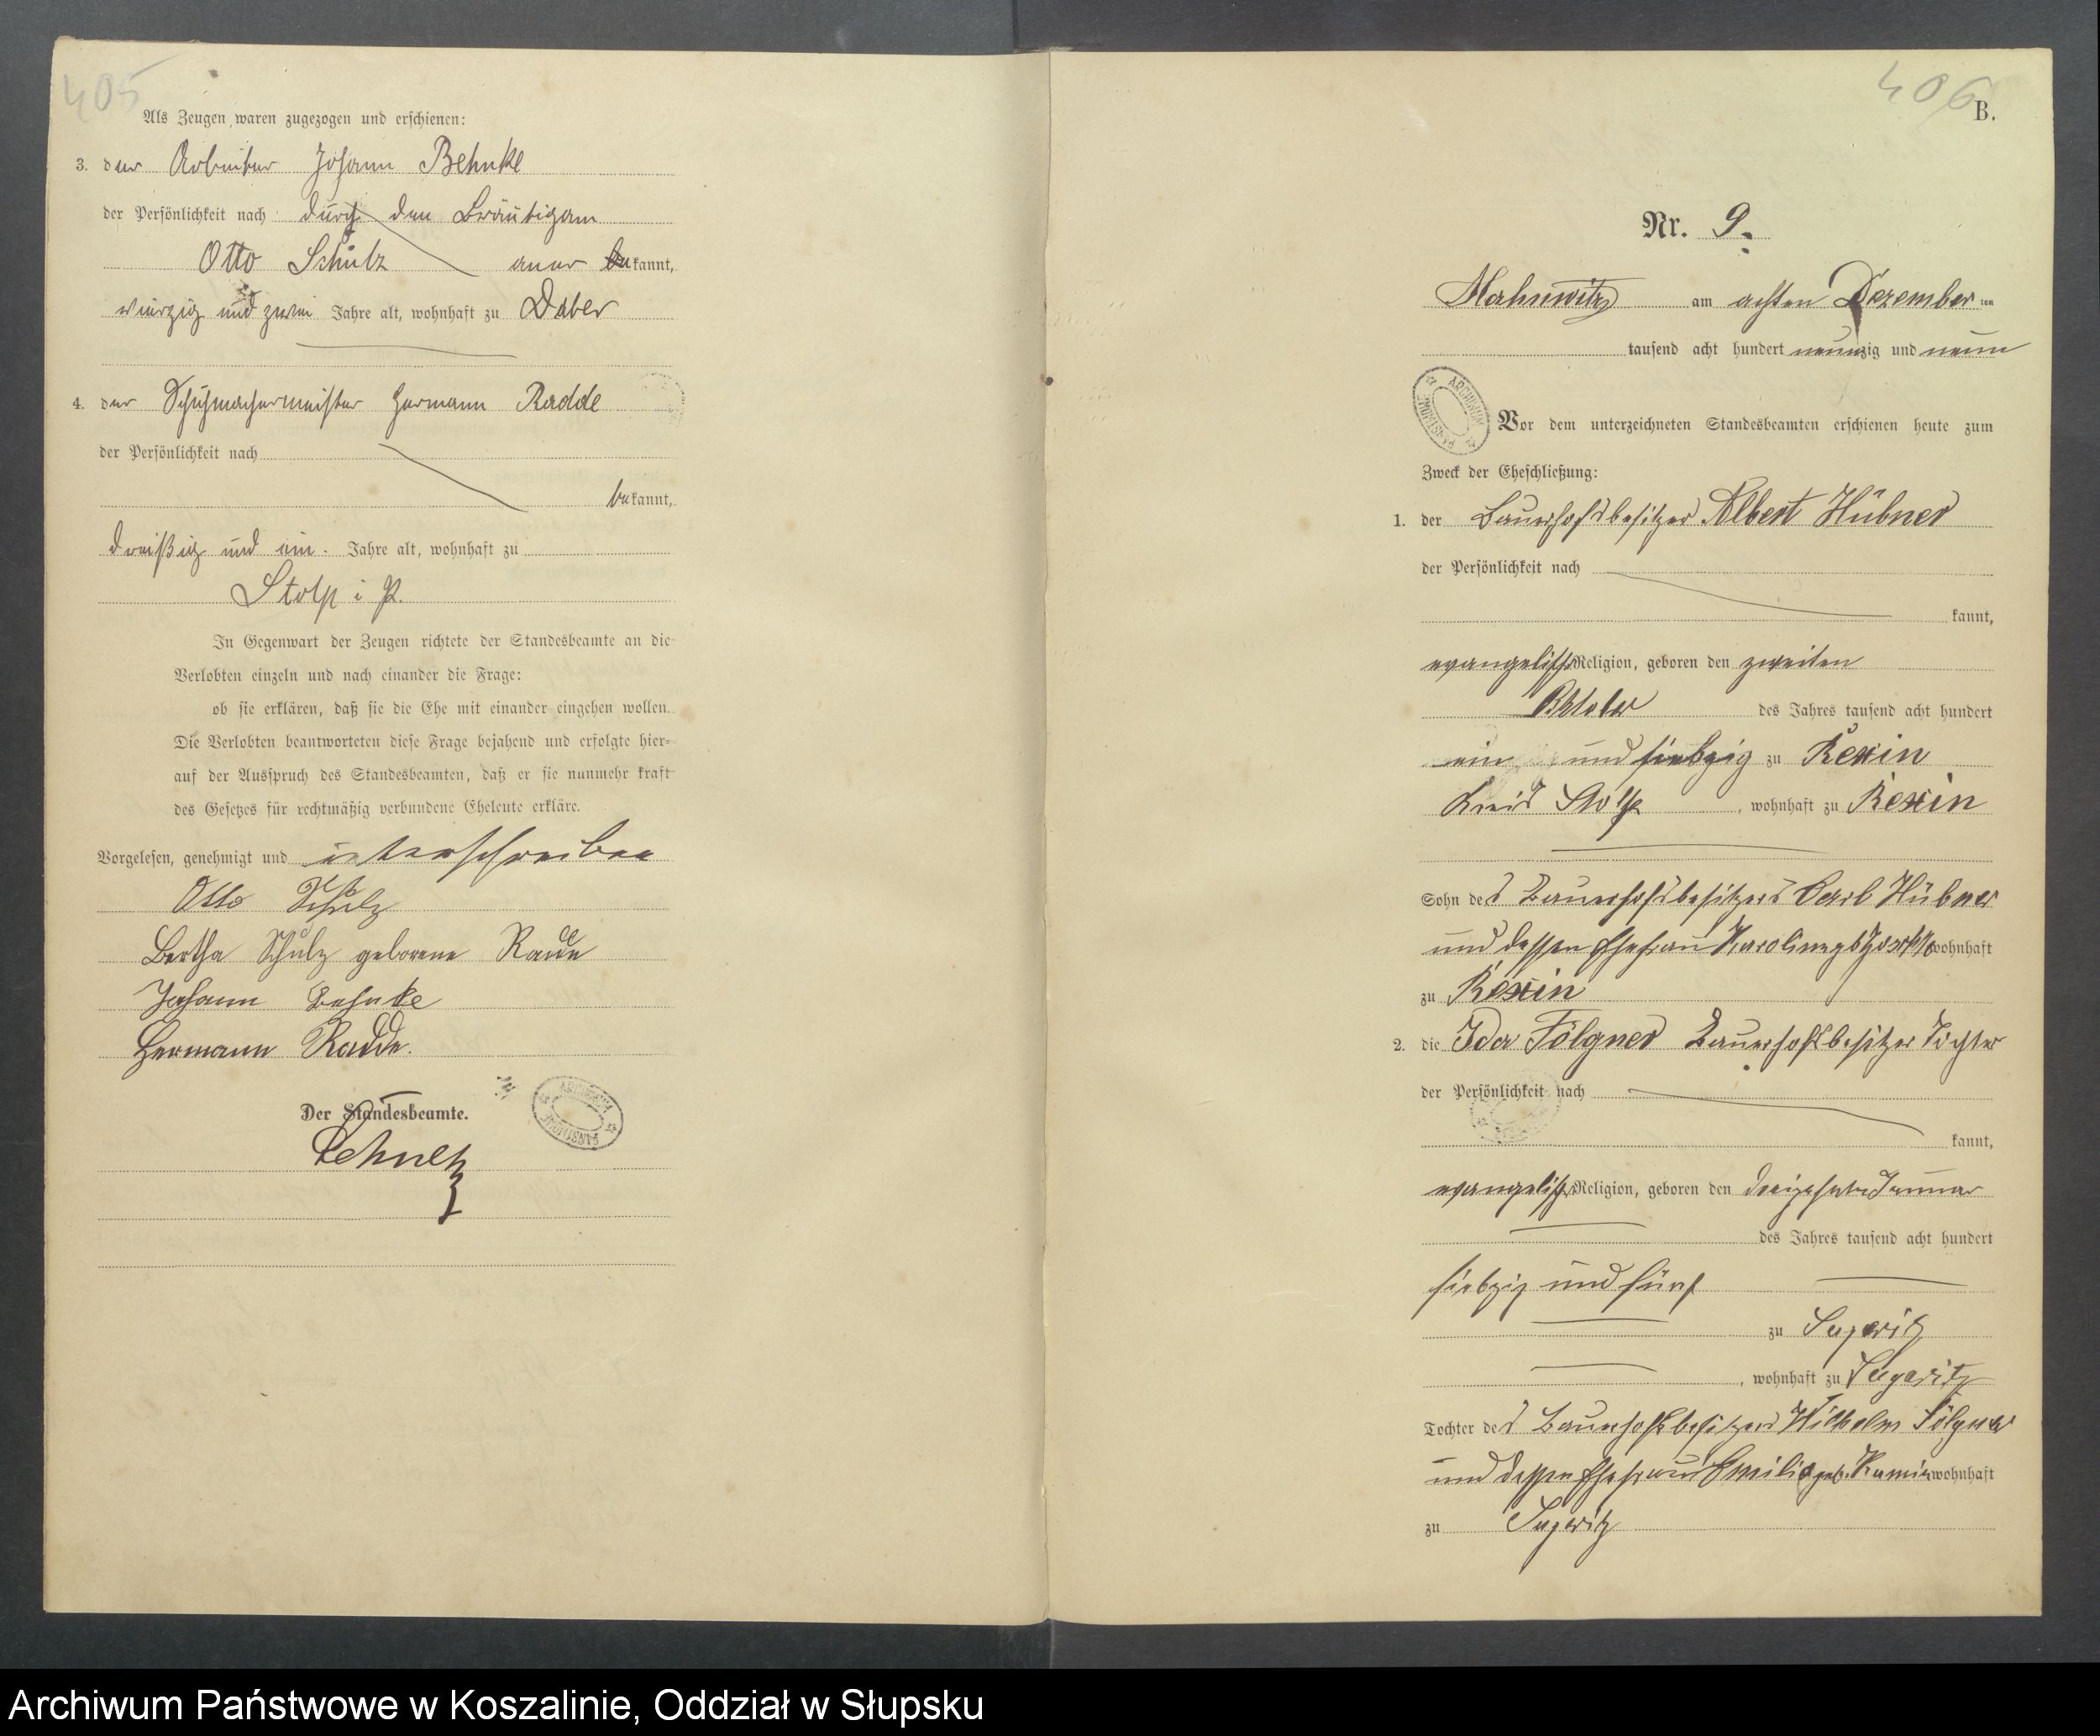 405
Als Zeugen waren zugezogen und erschienen:
3. der Arbeiter Johann Behnke
der Persönlichkeit nach durch den Bräutigam
Otto Schulz aner kannt,
vierzig und zwei Jahre alt, wohnhaft zu Daber
4. der Schuhmachermeister Hermann Radde
der Persönlichkeit nach
bekannt,
dreißig und ein Jahre alt, wohnhaft zu
Stolp i P.
In Gegenwart der Zeugen richtete der Standesbeamte an die
Verlobten einzeln und nach einander die Frage:
ob sie erklären, daß sie die Ehe mit einander eingehen wollen.
Die Verlobten beantworteten diese Frage bejahend und erfolgte hier-
auf der Ausspruch des Standesbeamten, daß er sie nunmehr kraft
des Gesetzes für rechtmäßig verbundene Eheleute erkläre.
Vorgelesen, genehmigt und unterschrieben
Otto Schulz
Bertha Schulz geborene
Johann Behnke
Hermann Radde.
Der Standesbeamte.
ARCHIWUM PAŃSTWOWE
406
B.
Nr. 9.
Mahnwitz am achten Dezember ein
tausend acht hundert neunzig und neun
ARCHIWUM PAŃSTWOWE
Vor dem unterzeichneten Standesbeamten erschienen heute zum
Zweck der Eheschließung:
1. der Bauerhofsbesitzer Albert Hübner
der Persönlichkeit nach
kannt,
evangelischer Religion, geboren den zweiten
Oktober des Jahres tausend acht hundert
ein und siebzig zu Rexin
Kreis Stolp, wohnhaft zu Rexin
Sohn des Bauerhofsbesitzers Carl Hübner
und dessen Ehefrau Karoline geb wohnhaft
zu Rexin
2. die Ida Fölgner Bauerhofsbesitzer Tochter
der Persönlichkeit nach
kannt,
evangelischer Religion, geboren den dreizehnten Januar
des Jahres tausend acht hundert
siebzig und fünf
zu
, wohnhaft zu
Tochter des Bauerhofsbesitzers Wilhelm Fölgner
und dessen Ehefrau Emilie geb. wohnhaft
zu
Archiwum Państwowe w Koszalinie, Oddział w Słupsku